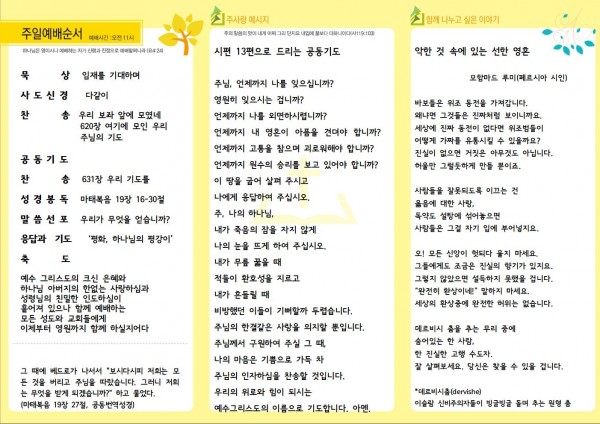 주일예배순서
예배시간 : 오전 11시
하나님은 영이시니 예배하는 자가 신령과 진정으로 예배할찌니라 (요4:24)
묵 상 임재를 기대하며
사도신경 다같이
찬 송 우리 보좌 앞에 모였네
620장 여기에 모인 우리
주님의 기도
공동기도
찬 송 631장 우리 기도를
성경봉독 마태복음 19장 16-30절
말씀선포 우리가 무엇을 얻습니까?
응답과 기도 '평화, 하나님의 평강이'
축 도
예수 그리스도의 크신 은혜와
하나님 아버지의 한없는 사랑하심과
성령님의 친밀한 인도하심이
흩어져 있으나 함께 예배하는
모든 성도와 교회들에게
이제부터 영원까지 함께 하실지어다
그 때에 베드로가 나서서 "보시다시피 저희는 모
든 것을 버리고 주님을 따랐습니다. 그러니 저희
는 무엇을 받게 되겠습니까?" 하고 물었다.
(마태복음 19장 27절, 공동번역성경)
주사랑 메시지
주의 말씀의 맛이 내게 어찌 그리 단지요 내입에 꿀보다 더하니이다(시119:103)
시편 13편으로 드리는 공동기도
주님, 언제까지 나를 잊으십니까?
영원히 잊으시는 겁니까?
언제까지 나를 외면하시렵니까?
언제까지 내 영혼이 아픔을 견뎌야 합니까?
언제까지 고통을 참으며 괴로워해야 합니까?
언제까지 원수의 승리를 보고 있어야 합니까?
이 땅을 굽어 살펴 주시고
나에게 응답하여 주십시오.
주, 나의 하나님,
내가 죽음의 잠을 자지 않게
나의 눈을 뜨게 하여 주십시오.
내가 무릎 꿇을 때
적들이 환호성을 지르고
내가 흔들릴 때
비방했던 이들이 기뻐할까 두렵습니다.
주님의 한결같은 사랑을 의지할 뿐입니다.
주님께서 구원하여 주실 그 때,
나의 마음은 기쁨으로 가득 차
주님의 인자하심을 찬송할 것입니다.
우리의 위로와 힘이 되시는
예수그리스도의 이름으로 기도합니다. 아멘.
함께 나누고 싶은 이야기
악한 것 속에 있는 선한 영혼
모함마드 루미(페르시아 시인)
바보들은 위조 동전을 가져갑니다.
왜냐면 그것들은 진짜처럼 보이니까요.
세상에 진짜 동전이 없다면 위조범들이
어떻게 가짜를 유통시킬 수 있을까요?
진실이 없으면 거짓은 아무것도 아닙니다.
허울만 그럴듯하게 만들 뿐이죠.
사람들을 잘못되도록 이끄는 건
옳음에 대한 사랑,
독약도 설탕에 섞어놓으면
사람들은 그걸 자기 입에 부어넣지요.
오! 모든 신앙이 헛되다 울지 마세요.
그들에게도 조금은 진실의 향기가 있지요.
그렇지 않았으면 설득하지 못했을 겁니다.
"완전히 환상이네!" 말하지 마세요.
세상의 환상중에 완전한 허위는 없습니다.
데르비시 춤을 추는 무리 중에
숨어있는 한 사람,
한 진실한 고행 수도자.
잘 살펴보세요. 당신은 찾을 수 있을 겁니다.
*데르비시춤(dervishe)
이슬람 신비주의자들이 빙글빙글 돌며 추는 원형 춤